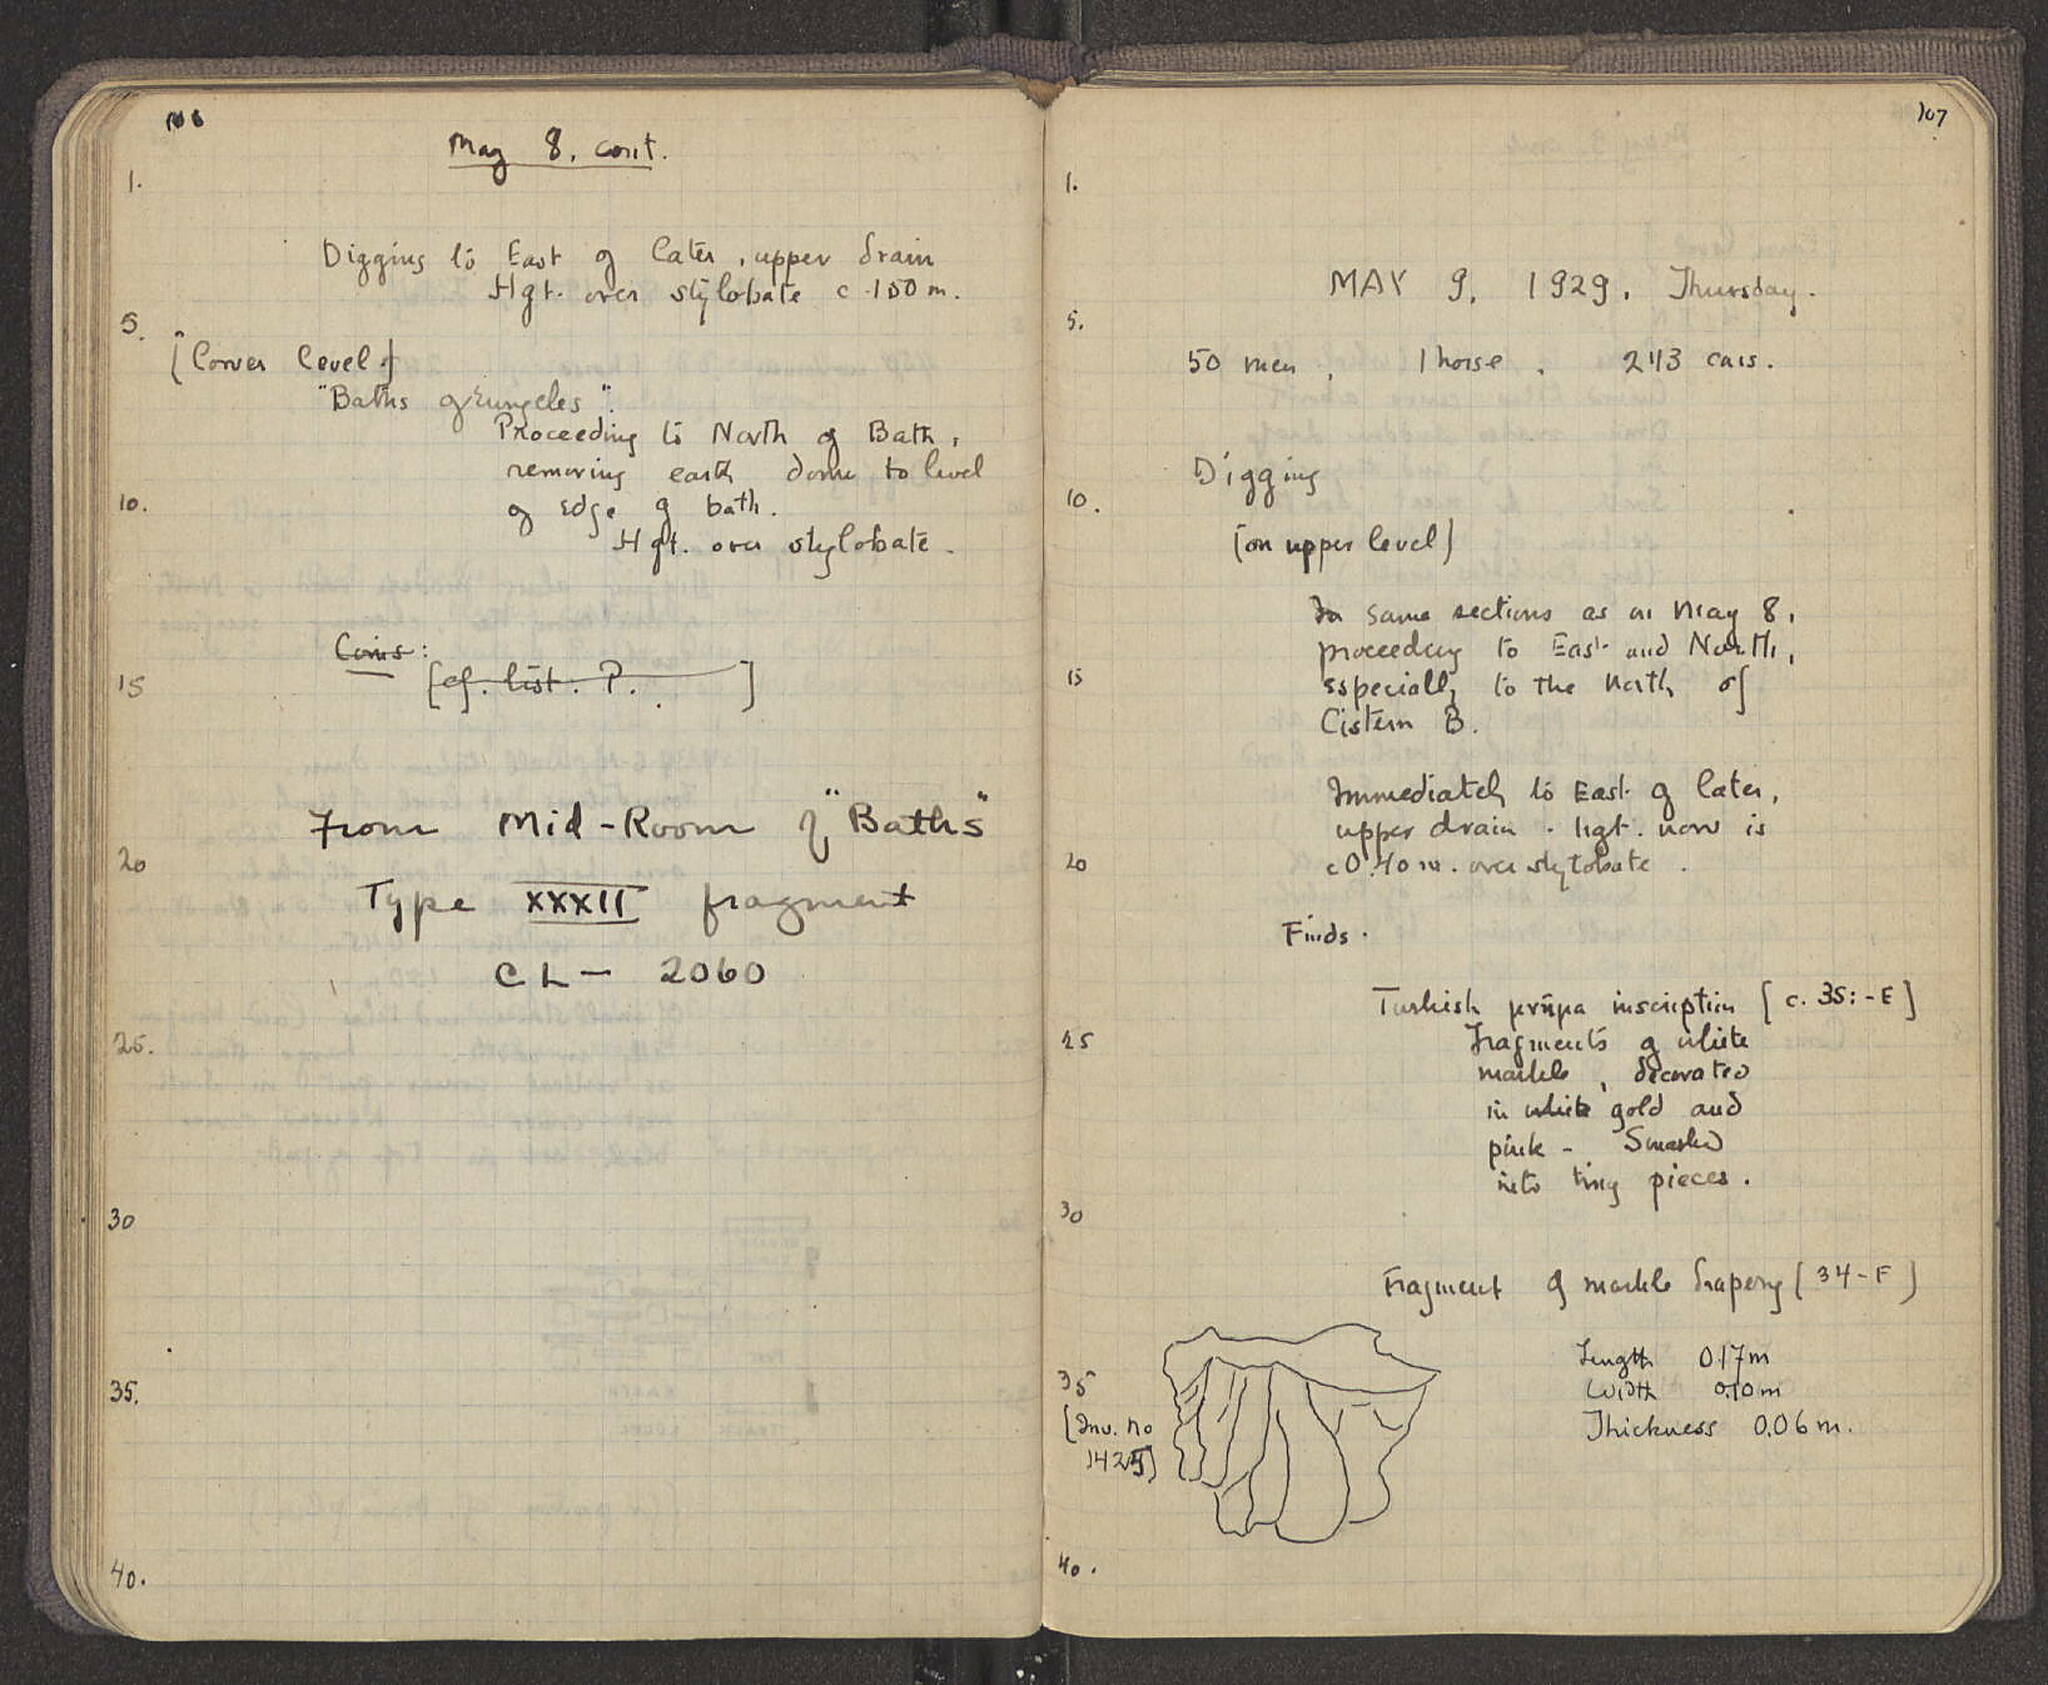 106
May 8. cont.
1.
Digging to East of later, upper drain
Hgt. over stylobate c. 1.50 m.
5.
[Lower level]
"Baths of Eurycles".
Proceeding to North of Bath,
removing earth down to level
10.
of edge of bath.
Hgt. over stylobate.
Coins:
15
[cf. list. P. ]
From Mid-Room of "Baths"
20
Type XXXII fragment
CL- 2060
25.
30
35.
40.
107
1.
MAY 9, 1929, Thursday.
5.
50 men, 1 horse, 243 cars.
Digging
10.
[on upper level]
In same sections as on May 8,
proceeding to East and North,
15
especially to the north of
Cistern B.
Immediately to East of later,
upper drain. hgt. now is
20
c 0.40 m. over stylobate.
Finds.
Turkish inscription [c. 35:-E]
25
Fragments of white
marble, decorated
in white gold and
pink - Smashed
into tiny pieces.
30
Fragment of marble drapery [34-F]
Length 0.17m
35
Width 0.10m
[Inv. no
Thickness 0.06 m.
1425]
40.